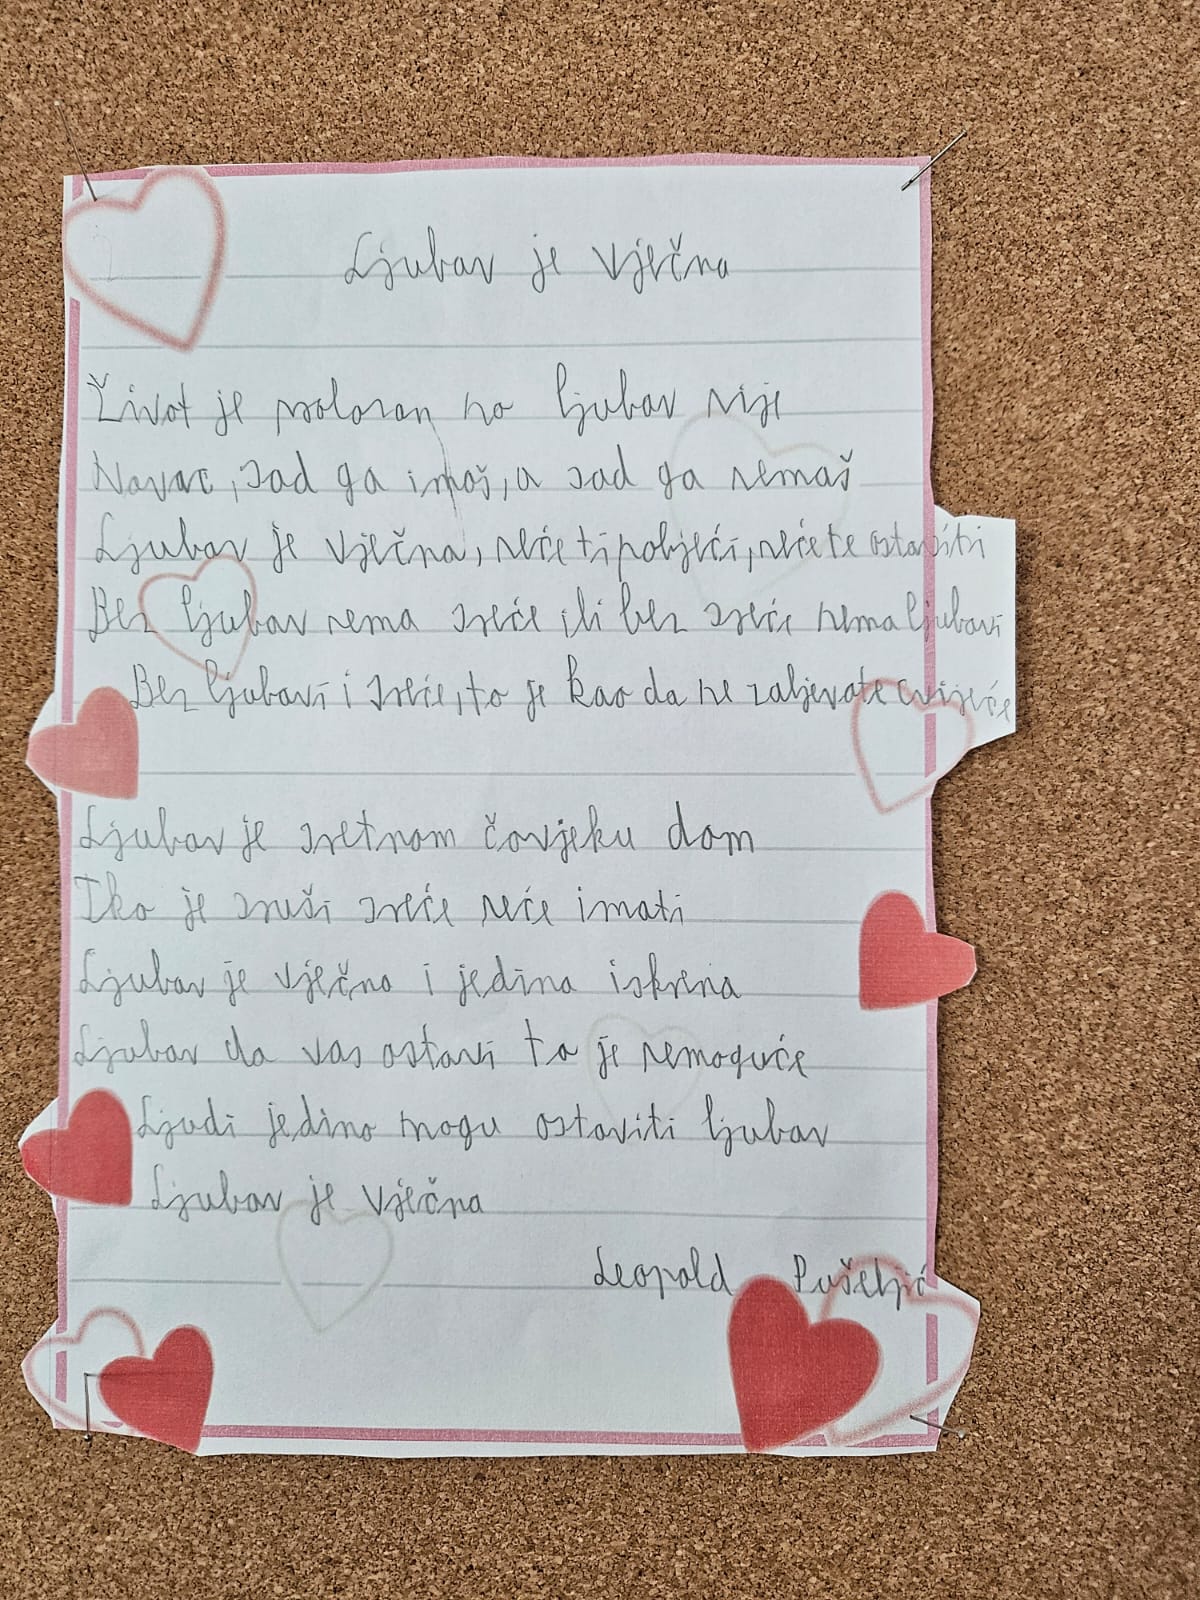 Ljubav je vječna
Život je prolazan no ljubav nije
Novac, sad ga imaš, a sad ga nemaš
Ljubav je vječna, neće ti pobjeći, neće te ostaviti
Bez ljubav nema sreće ili bez sreće nema ljubavi
Bez ljubavi i sreće, to je kao da ne zaljevate cvijeće
Ljubav je sretnom čovjeku dom
Tko je sruši sreće neće imati
Ljubav je vječna i jedina iskrena
Ljubav da vas ostavi to je nemoguće
Ljudi jedino mogu ostaviti ljubav
Ljubav je vječna
Leopold